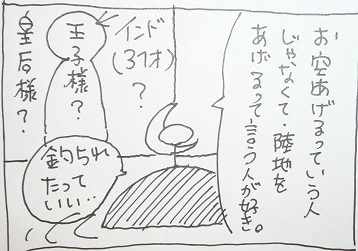 お空あげるっていう人
じゃなくて、陸地を
あげるって言う人が好き。
インド
(37才)
?
王子様?
皇后様?
釣られ
たって
いい…